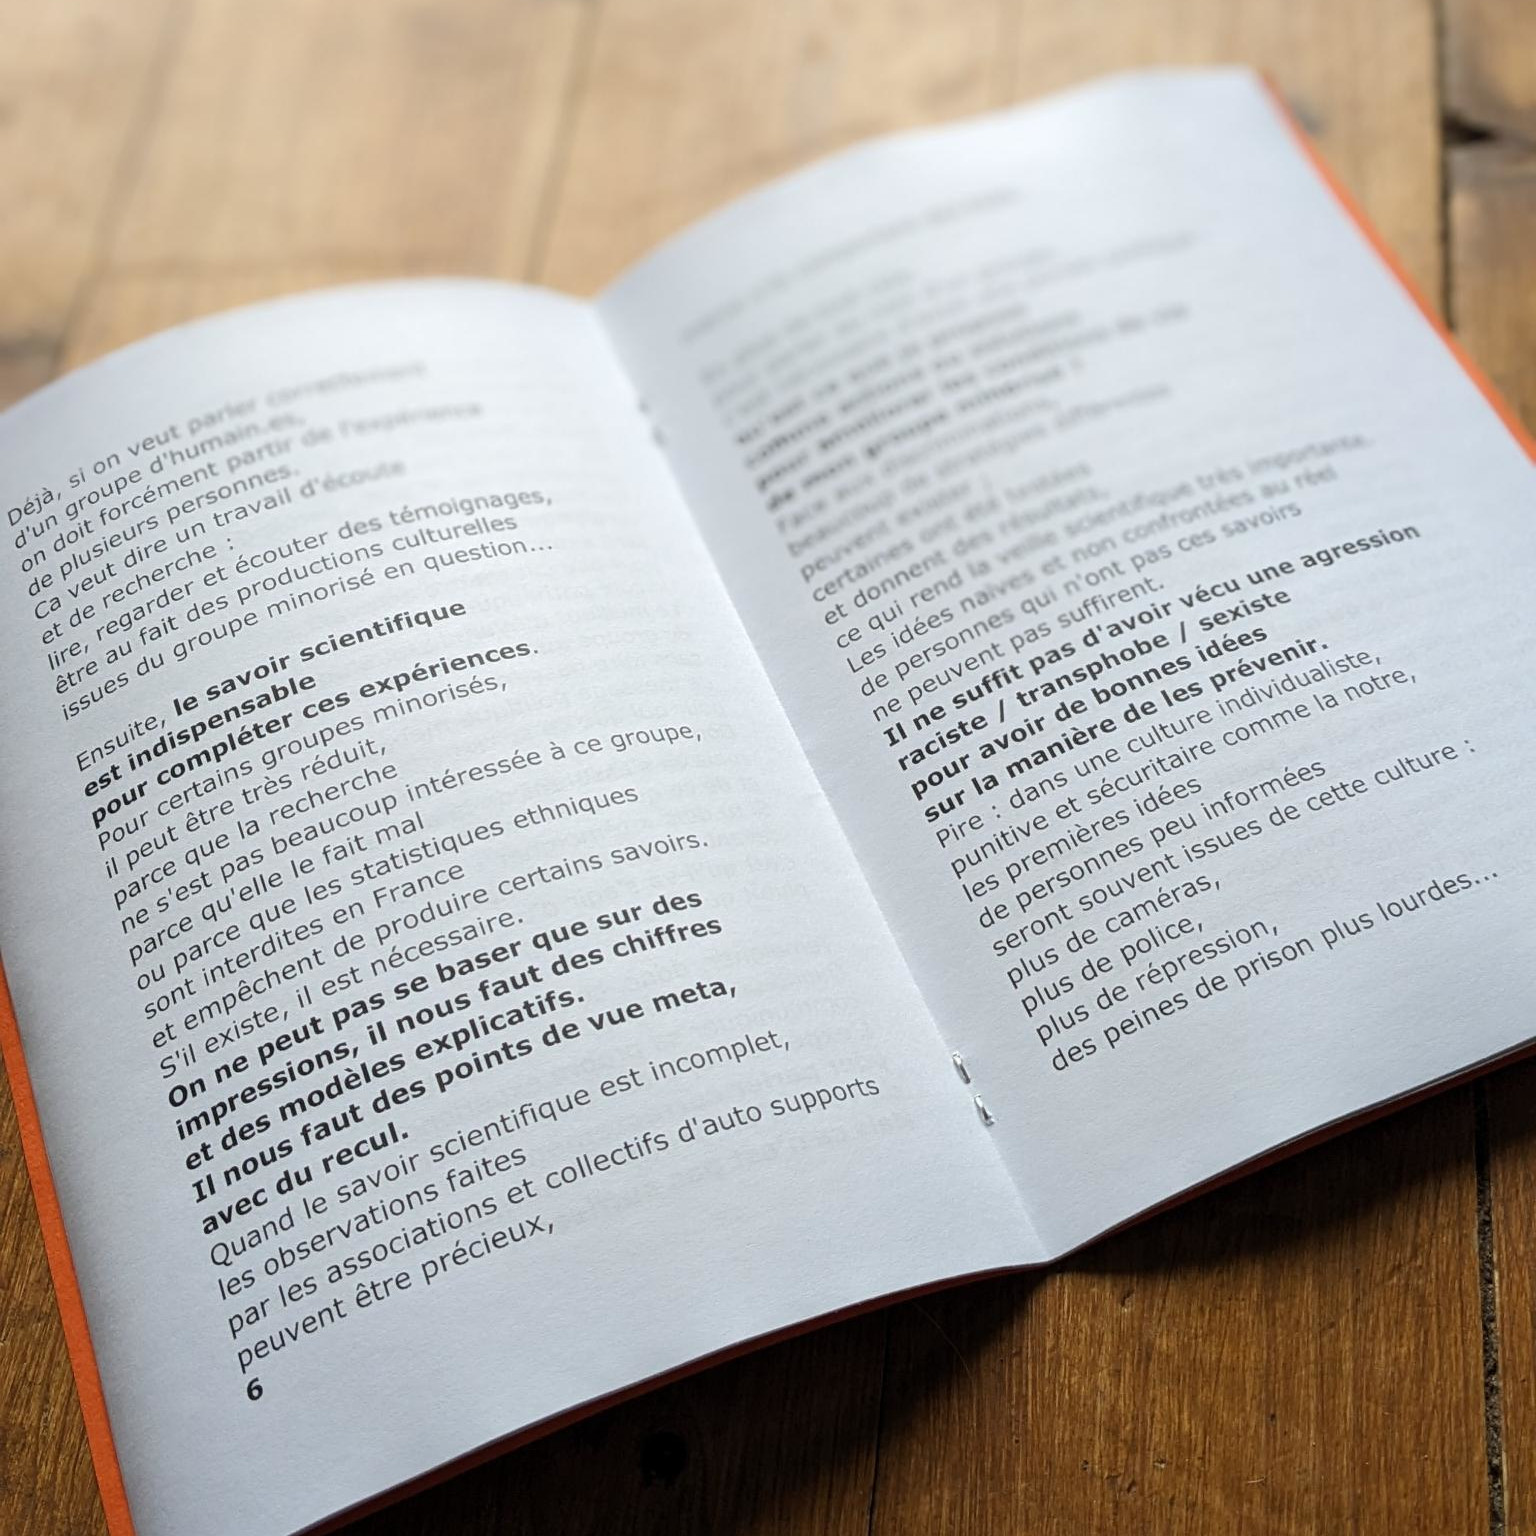 Déjà, si on veut parler correctement
d'un groupe d'humain.es,
on doit forcément partir de l'expérience
de plusieurs personnes.
Ca veut dire un travail d'écoute
et de recherche :
lire, regarder et écouter des témoignages,
être au fait des productions culturelles
issues du groupe minorisé en question...
Ensuite, le savoir scientifique
est indispensable
pour compléter ces expériences.
Pour certains groupes minorisés,
il peut être très réduit,
parce que la recherche
ne s'est pas beaucoup intéressée à ce groupe,
parce qu'elle le fait mal
ou parce que les statistiques ethniques
sont interdites en France
et empêchent de produire certains savoirs.
S'il existe, il est nécessaire.
On ne peut pas se baser que sur des
impressions, il nous faut des chiffres
et des modèles explicatifs.
Il nous faut des points de vue meta,
avec du recul.
Quand le savoir scientifique est incomplet,
les observations faites
par les associations et collectifs d'auto supports
peuvent être précieux,
6
pour améliorer les conditions de vie
de mon groupe minorisé ?
Face aux discriminations,
beaucoup de stratégies différentes
peuvent exister ;
certaines ont été testées
et donnent des résultats,
ce qui rend la veille scientifique très importante.
Les idées naïves et non confrontées au réel
de personnes qui n'ont pas ces savoirs
ne peuvent pas suffirent.
Il ne suffit pas d'avoir vécu une agression
raciste / transphobe / sexiste
pour avoir de bonnes idées
sur la manière de les prévenir.
Pire : dans une culture individualiste,
punitive et sécuritaire comme la notre,
les premières idées
de personnes peu informées
seront souvent issues de cette culture :
plus de caméras,
plus de police,
plus de répression,
des peines de prison plus lourdes...